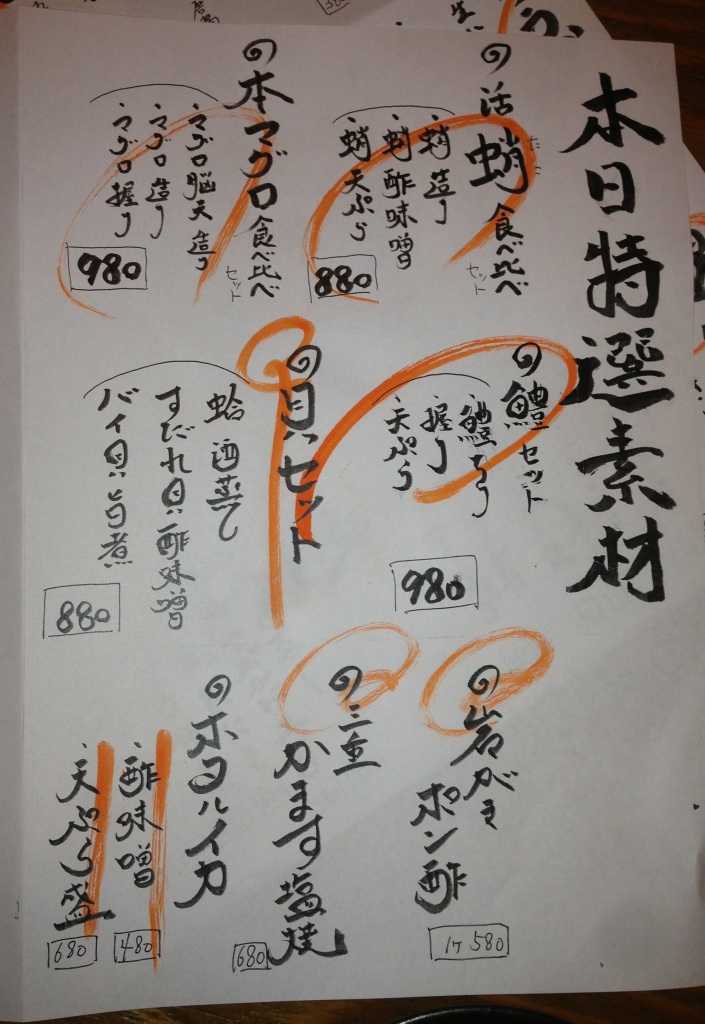 本日特選素材
活蛸食べ比べ
たこ
セット
・蛸造り
・蛸酢味噌
・蛸天ぷら
880
本マグロ食べ比べ
セット
・マグロ脳天造り
・マグロ造り
・マグロ握り
980
鱧セット
・鱧ちり
・握り
・天ぷら
980
貝セット
蛤酒蒸し
すだれ貝酢味噌
バイ貝旨煮
880
岩がき
ポン酢
1ケ580
三重
かます塩焼
680
ホタルイカ
・酢味噌
480
・天ぷら盛
680